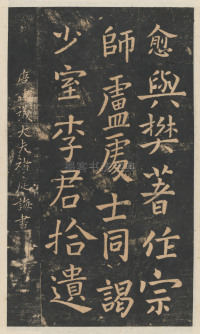 愈與樊著作宗
師盧處士同謁
少室李君拾遺
大夫書